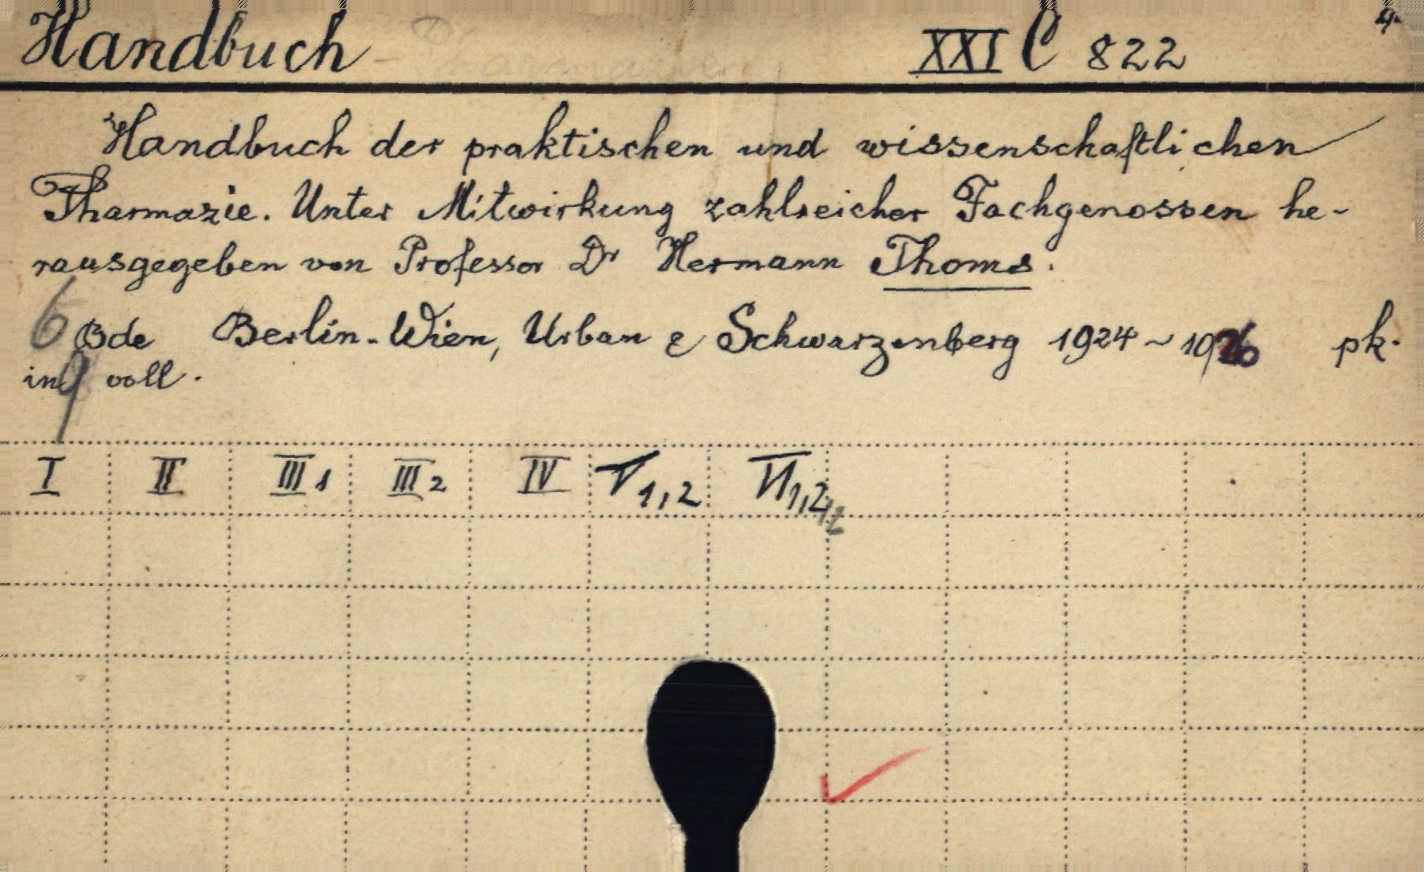 Handbuch XXI C 822 4°
Handbuch der praktischen und wissenschaftlichen
Pharmazie. Unter Mitwirkung zahlreicher Fachgenossen he-
rausgegeben von Professor Dr Hermann Thoms.
6 Bde Berlin-Wien, Urban & Schwarzenberg 1924 - 1926 pk.
in 9 voll.
I II III 1 III 2 IV V 1,2 VI 1,2